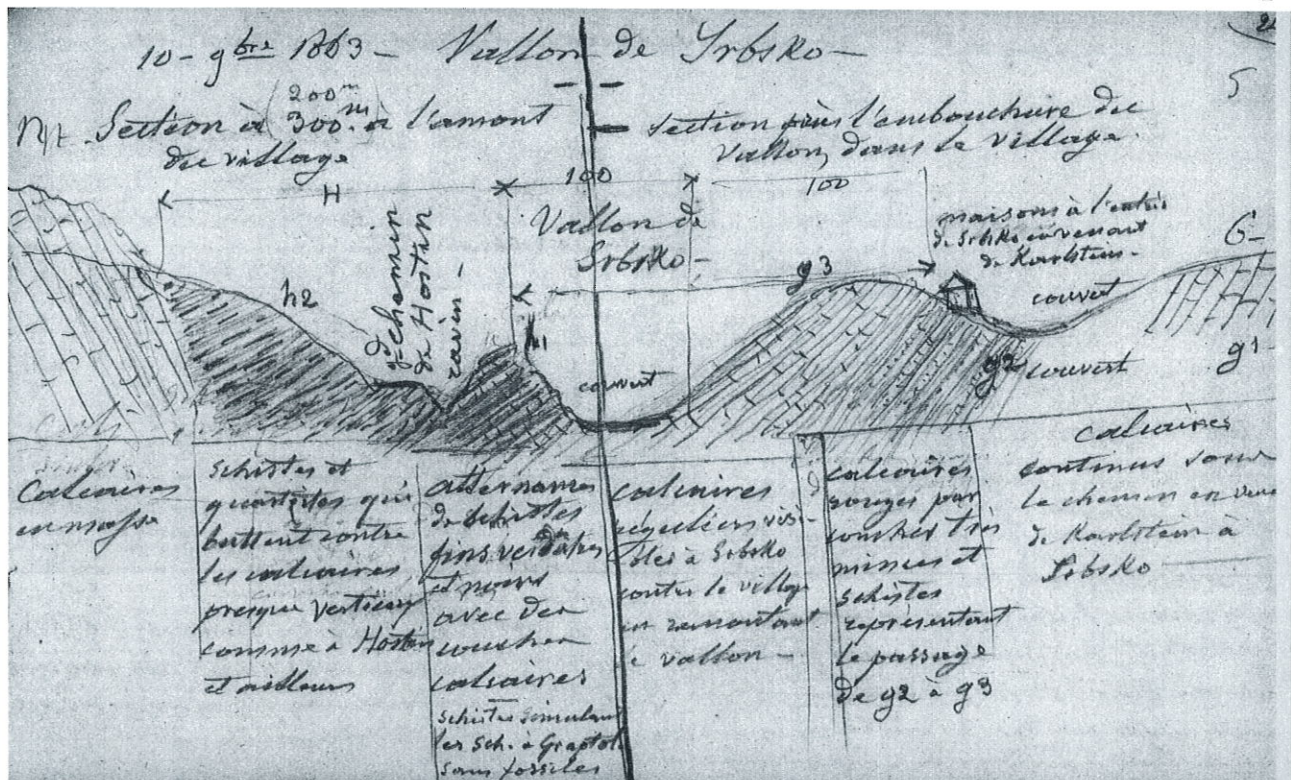 10 - 9bre 1863 - Vallon de Srbsko -
5
Section à 300m à l'amont
200m
du village
Section près l'embouchure du
Vallon, dans le village.
H
100
100
Vallon de
Srbsko -
chemin
de Hostin
ravin -
maisons à l'entrée
de Srbsko en venant
de Karlstein -
G -
h2
h1
g3
couvert
couvert
g2
couvert
g1
calcaires
en masse
schistes et
quartzites qui
buttent contre
les calcaires
presque verticaux
comme à Hostin
et ailleurs
alternances
de schistes
fins verdâtres
et noirs
avec des
couches
calcaires
schistes simulant
les Sch. à Graptol
sans fossiles
calcaires
réguliers visi-
bles à Srbsko
contre le village
en remontant
le vallon -
calcaires
rouges par
couches très
minces et
schistes
représentant
le passage
de g2 à g3
calcaires
continus sous
le chemin en
de Karlstein à
Srbsko